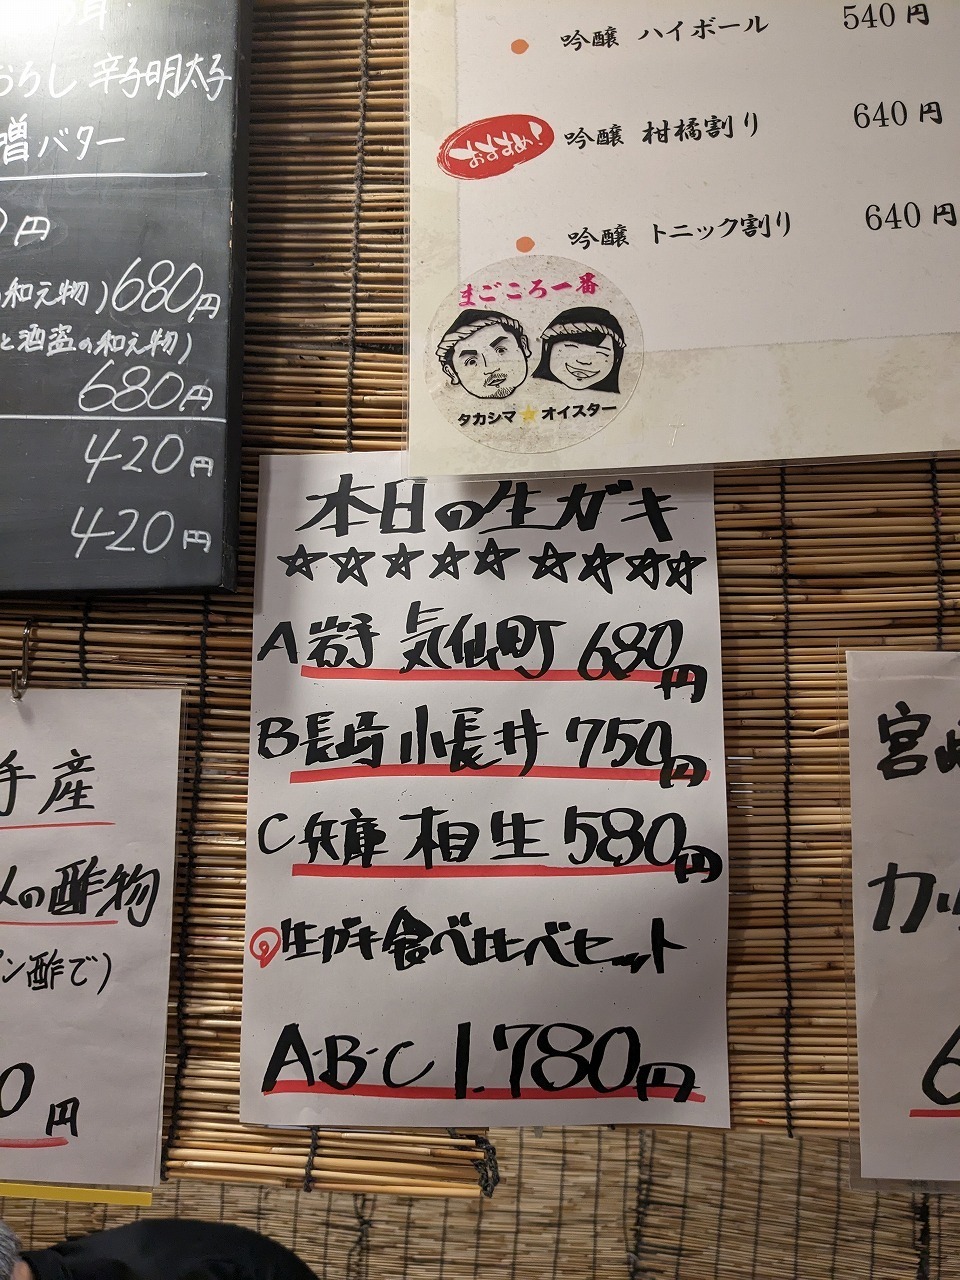 おろし 辛子明太子
噌バター
円
和え物) 680円
と酒盗の和え物)
680円
420円
420円
吟醸 ハイボール 540円
おすすめ! 吟醸 柑橘割り 640円
吟醸 トニック割り 640円
まごころ一番
タカシマ★オイスター
本日の生ガキ
☆☆☆☆☆☆☆☆☆
A 岩手 気仙町 680円
B 長崎 小長井 750円
C 兵庫 相生 580円
生ガキ食べ比べセット
A・B・C 1.780円
手産
の酢物
ン酢で)
0円
宮崎
カツ
6